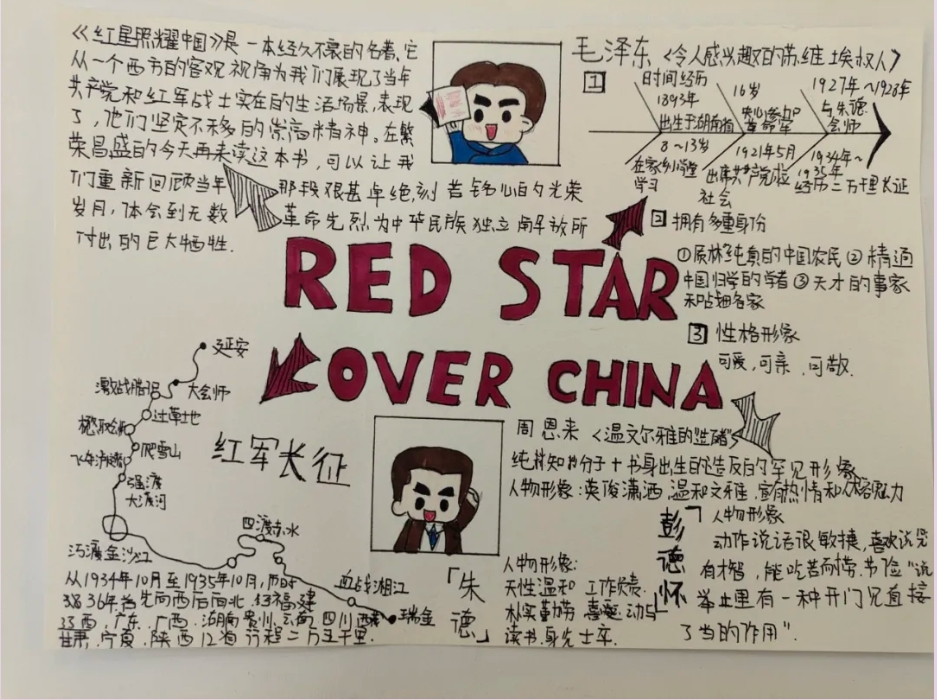 《红星照耀中国》是一本经久不衰的名著,它
从一个西方的客观视角为我们展现了当年
共产党和红军战士实在的生活场景,表现
了,他们坚定不移的崇高精神。在繁
荣昌盛的今天再来读这本书,可以让我
们重新回顾当年
那段艰甚卓绝,刻苦铭心的光荣
岁月,体会到无数
革命先烈为中华民族独立解放所
付出的巨大牺牲.
毛泽东《令人感兴趣的苏维埃权人》
1
时间经历
1893年
出生于湖南
8~13岁
在家乡小学堂
学习
16岁
革命军
1921年5月
出席共产党
社会
1927年~1928年
与朱德
会师
1934年~
1935年
经历二万里长征
2 拥有多重身份
①质朴纯真的中国农民②精通
中国旧学的学者③天才的军事家
和占領名家
3 性格形象
可爱,可亲,可敬.
RED STAR
OVER CHINA
延安
大会师
激战腊子口
过草地
爬雪山
强渡
大渡河
巧渡金沙江
四渡赤水
血战湘江
瑞金
红军长征
从1934年10月至1935年10月,历时
368天首先向西后向北,经福建
江西,广东,广西,湖南贵州,云南,四川西藏
甘肃,宁夏,陕西12省行程二万五千里.
周恩来《温文尔雅的造反者》
纯粹知识分子+书身出生的造反的罕见形象
人物形象:英俊潇洒,温和文雅,富有热情和人格魅力
「朱德」
人物形象:
天性温和 工作负责
朴实勤劳 喜爱运动与
读书.身先士卒.
「彭德怀」
人物形象
动作说话很敏捷,喜欢说笑
有才智,能吃苦而耐劳.节俭"说
举止里有一种开门见直接
了当的作用".